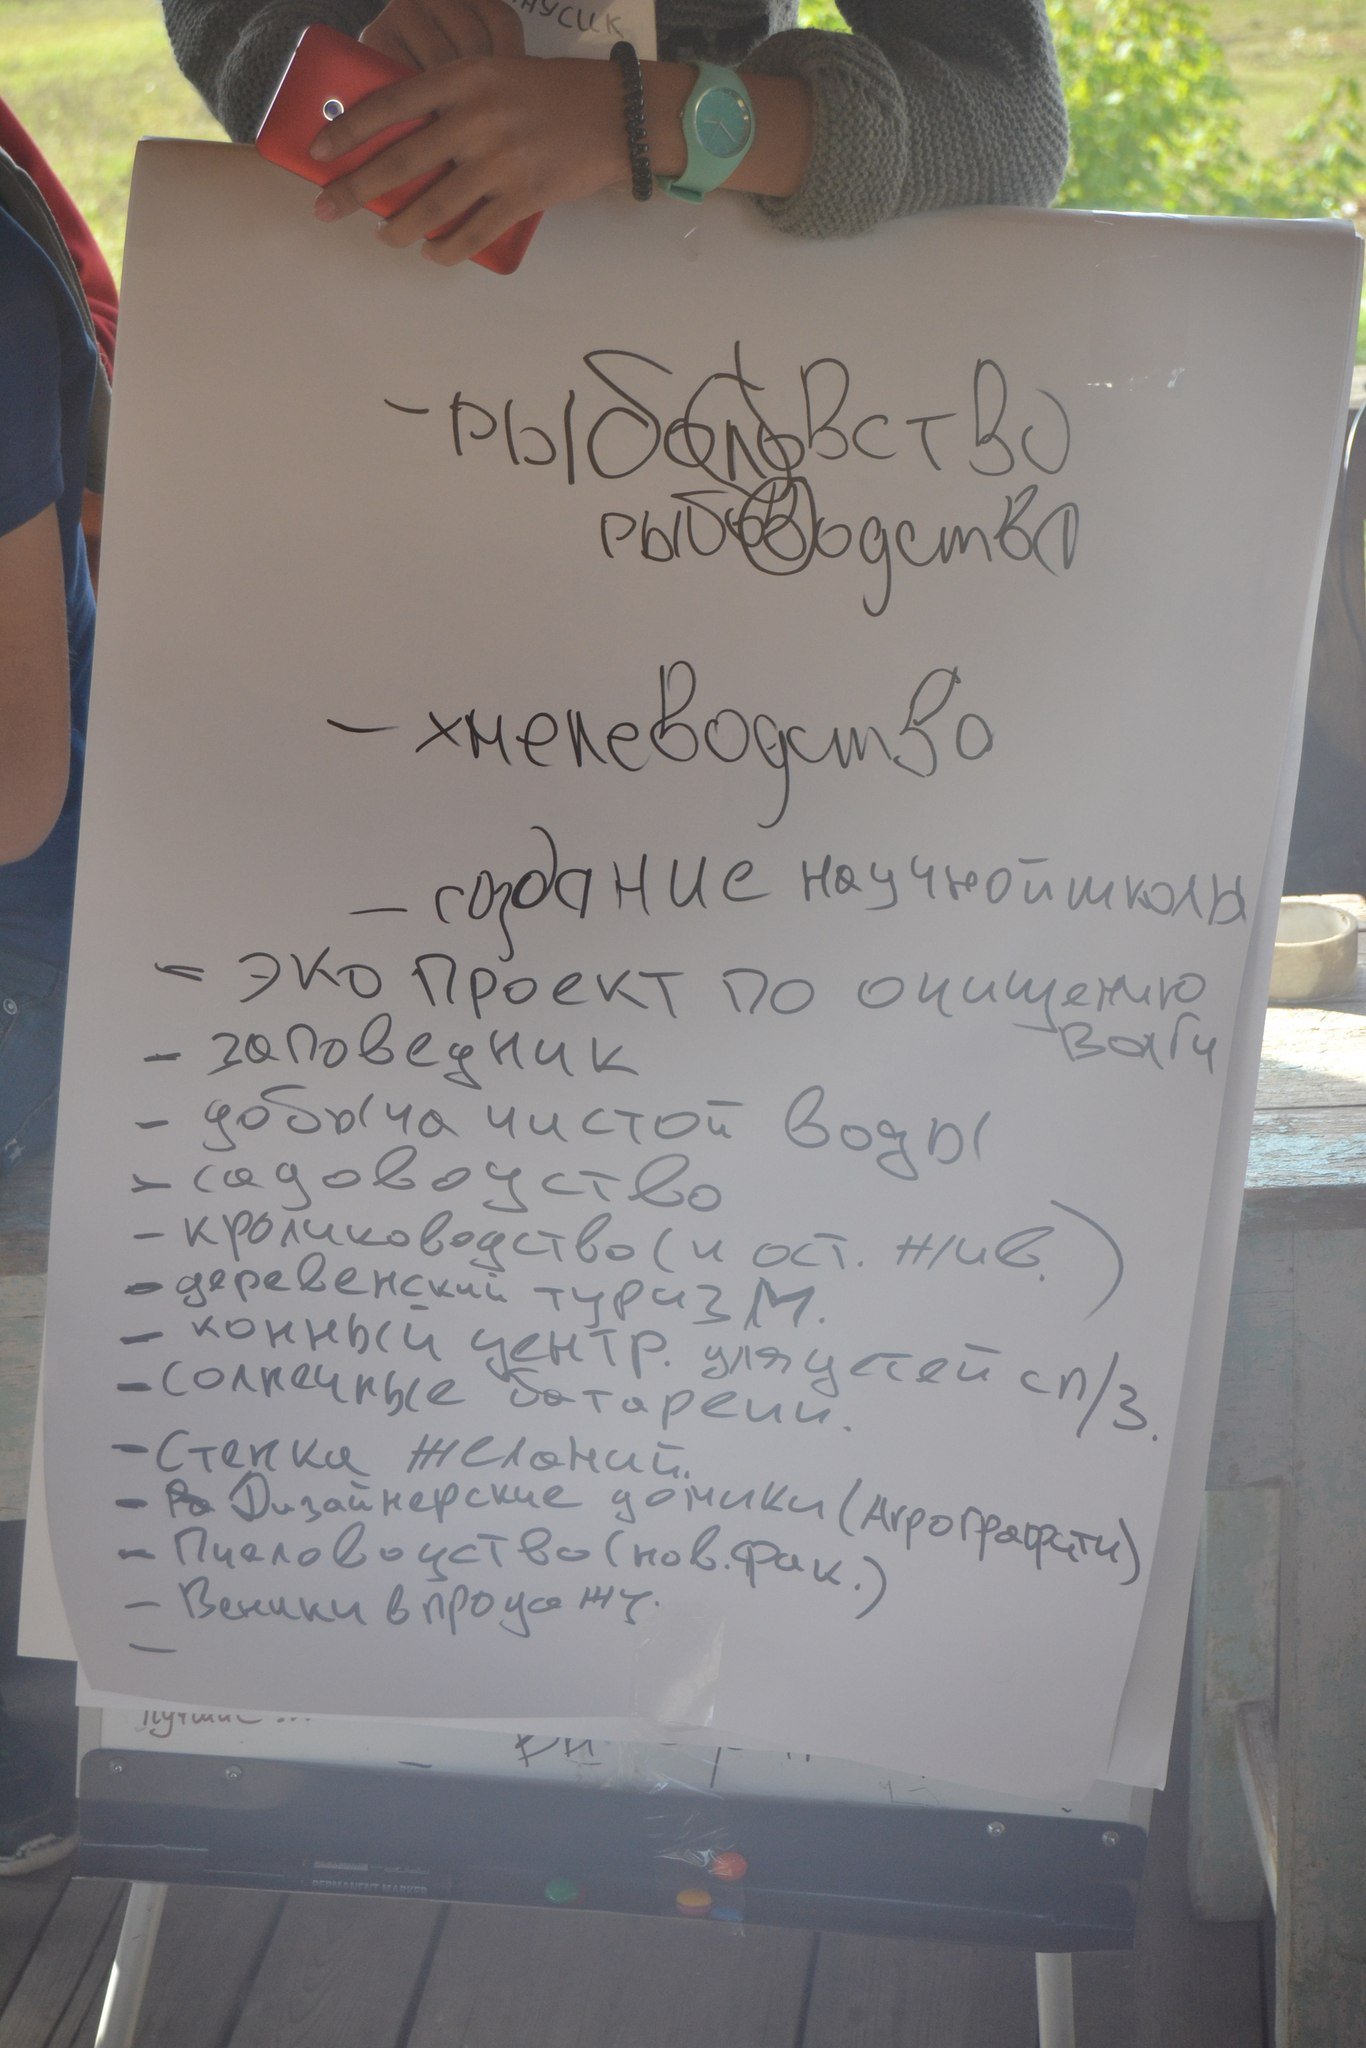 - рыболовство
рыбоводство
- хмелеводство
- создание научной школы
- эко проект по очищению
Волги
- заповедник
- добыча чистой воды
- садоводство
- кролиководство (и ост. жив.)
- деревенский туризм.
- конный центр. для детей с п/з.
- солнечные батареи.
- Стенка желаний.
- Дизайнерские домики (Агрографити)
- Пчеловодство (нов. фак.)
- Веники в продажу.
-
лучшие...
PERMANENT MARKER